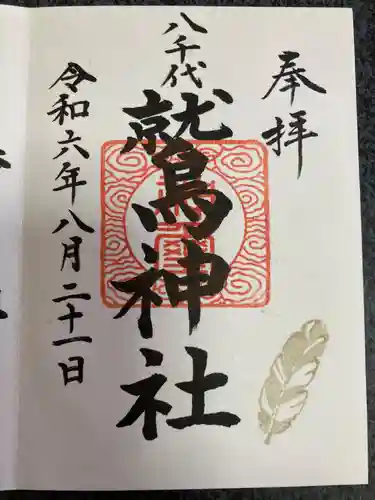 奉拝
八千代
鷲鳥神社
令和六年八月二十一日